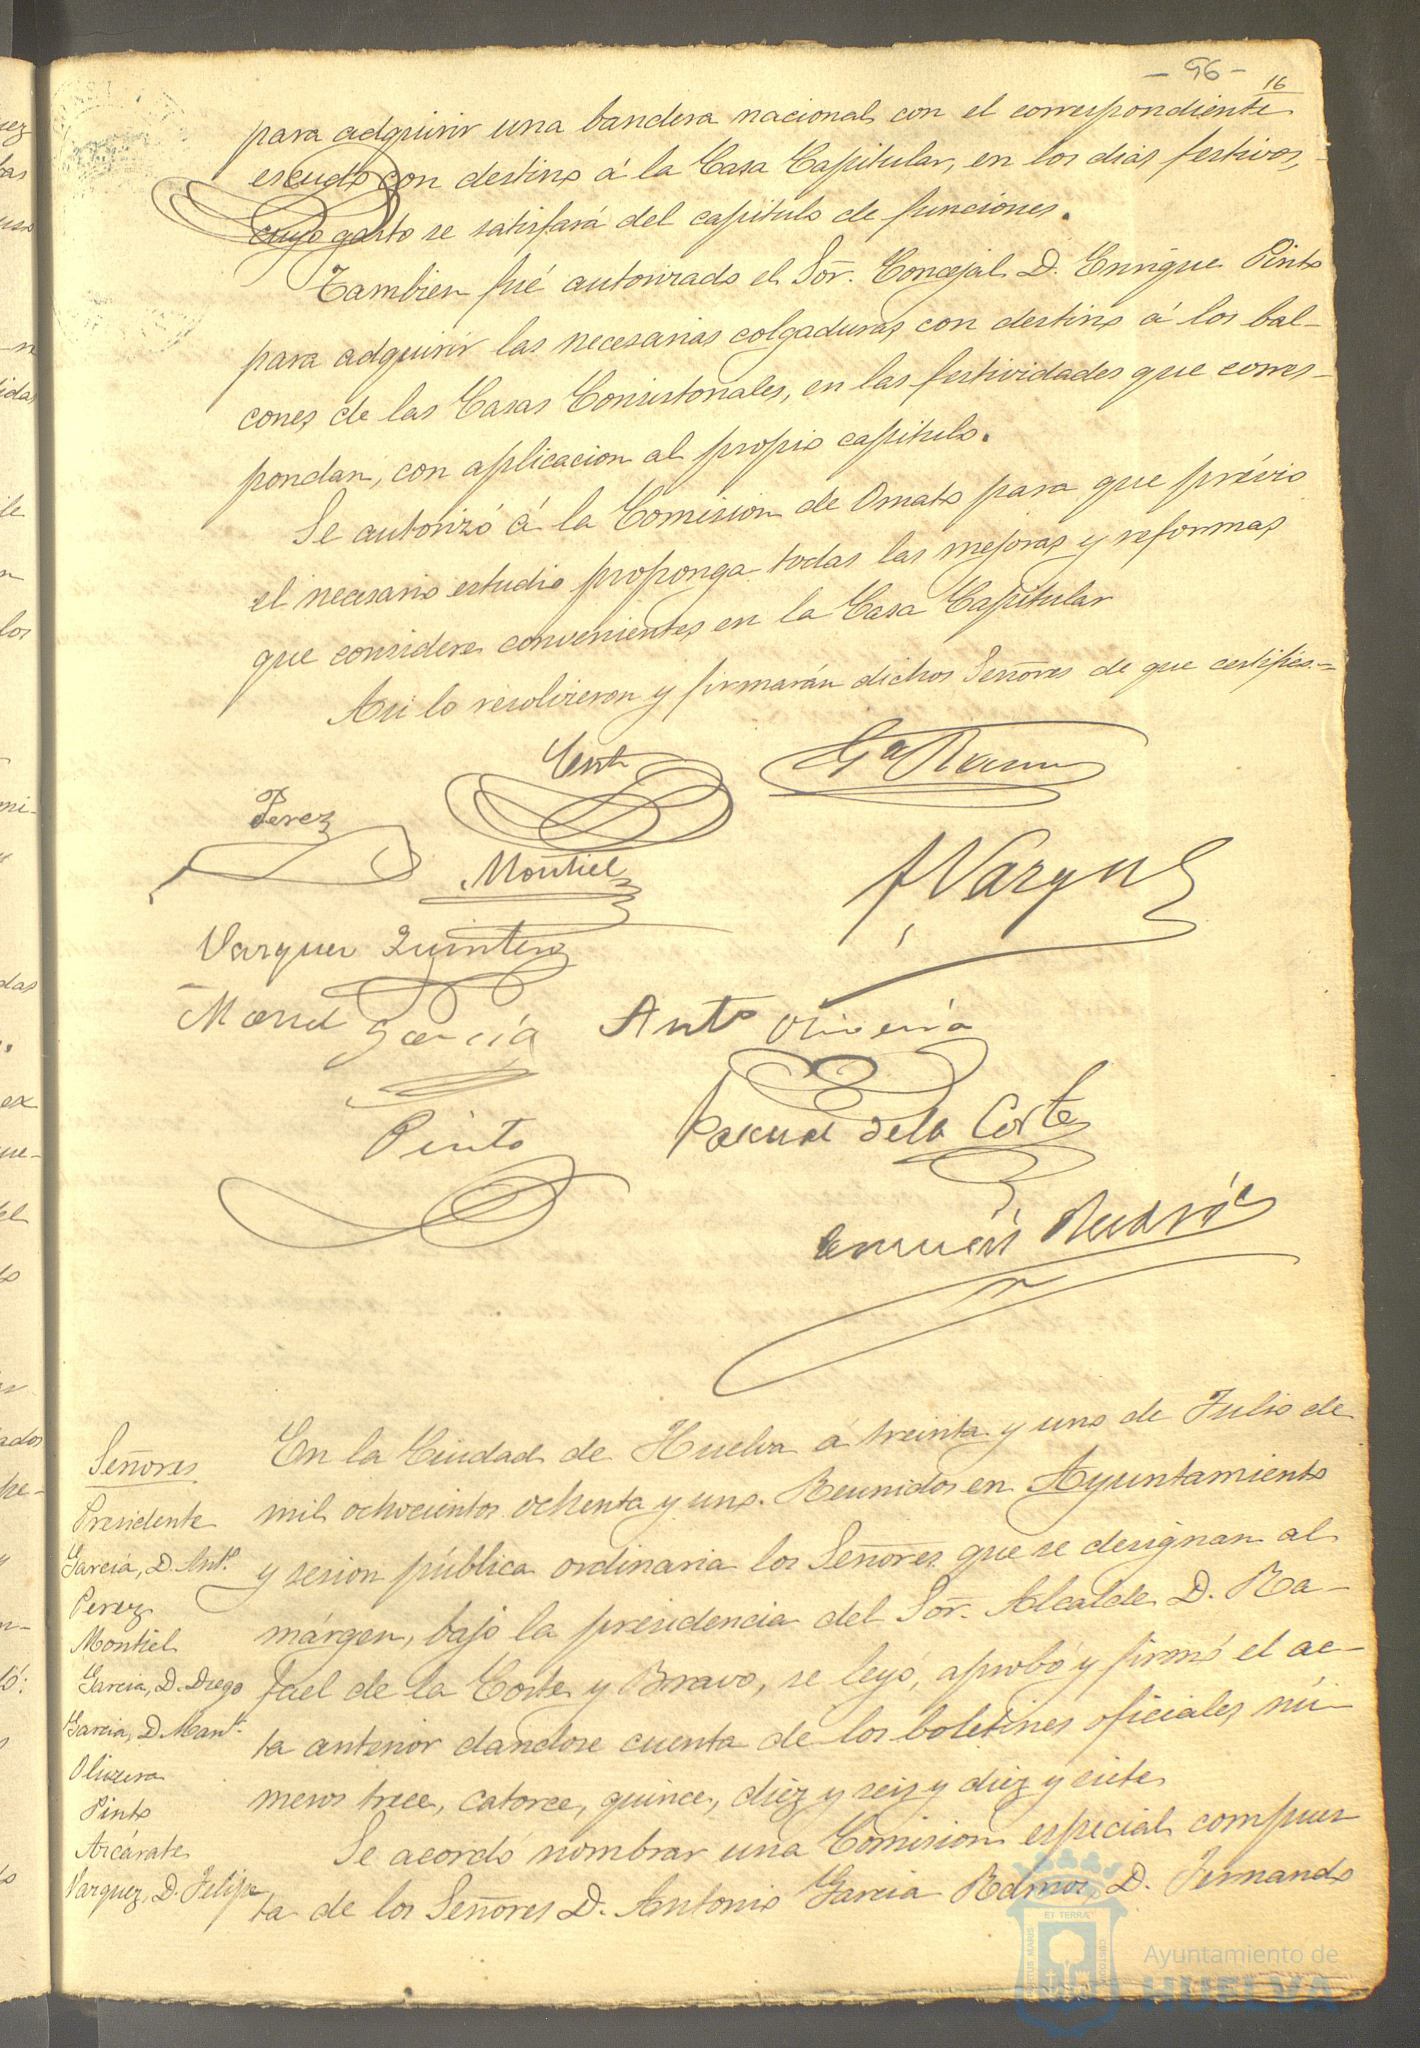 - 96 -
16
para adquirir una bandera nacional con el correspondiente
escudo con destino á la Casa Capitular, en los dias festivos,
cuyo gasto se satisfará del capitulo de funciones.
Tambien fué autorizado el Sor. Concejal D. Enrique Pinto
para adquirir las necesarias colgaduras con destino á los bal-
cones de las Casas Consistoriales, en las festividades que corres-
pondan, con aplicacion al propio capitulo.
Se autorizó á la Comision de Ornato para que prévio
el necesario estudio proponga todas las mejoras y reformas
que considere convenientes en la Casa Capitular
Asi lo resolvieron y firmarán dichos Señores de que certifico.=
Corte
Ga Ramos
Perez
Montiel
F Vazquez
Vazquez Quintero
Manuel Garcia
Anto Olivera
Pinto
Pascual de la Corte
Señores
Presidente
Garcia, D. Anto.
Perez
Montiel
Garcia, D. Diego
Garcia, D. Manl.
Olivera
Pinto
Azcárate
Vazquez, D. Felipe
En la Ciudad de Huelva á treinta y uno de Julio de
mil ochocientos ochenta y uno. Reunidos en Ayuntamiento
y sesion pública ordinaria los Señores que se designan al
márgen, bajo la presidencia del Sor. Alcalde D. Ra-
fael de la Corte y Bravo, se leyó, aprobó y firmó el ac-
ta anterior dandose cuenta de los boletines oficiales nú-
meros trece, catorce, quince, diez y seis y diez y siete
Se acordó nombrar una Comision especial compues
ta de los Señores D. Antonio Garcia Ramos D. Fernando
Ayuntamiento de
HUELVA